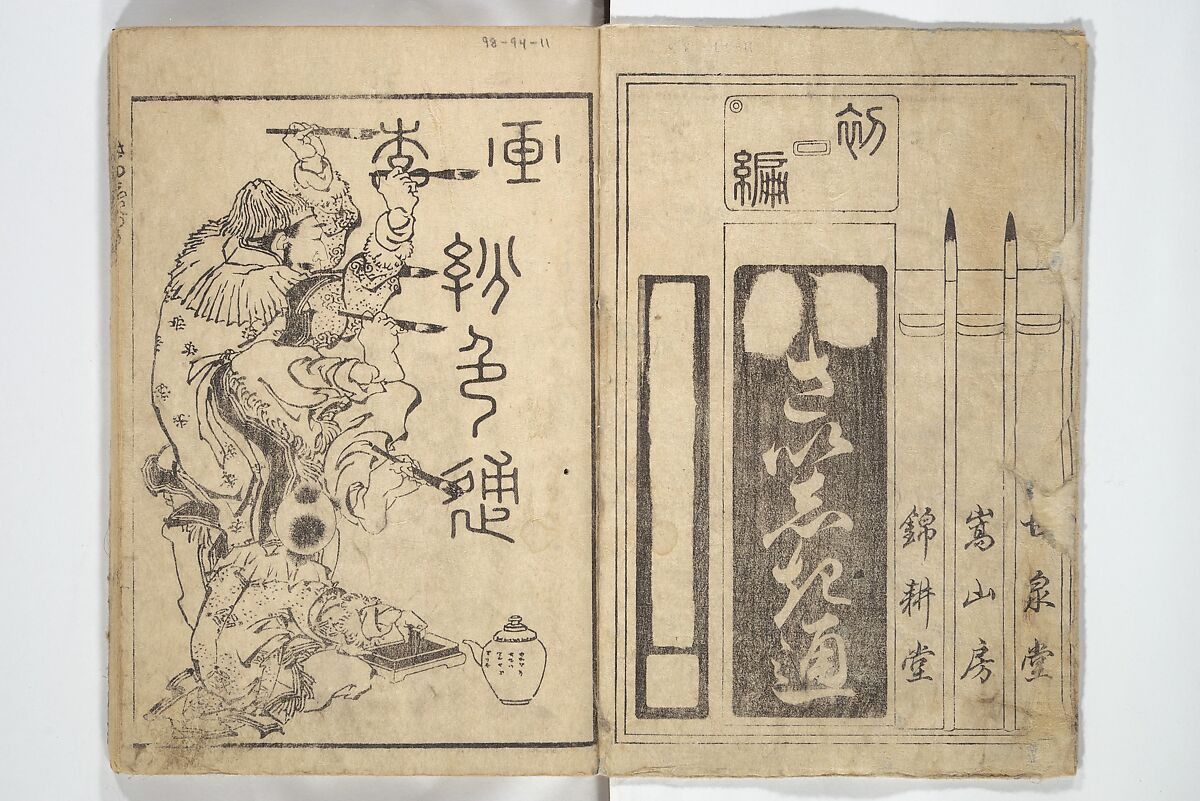 初編
泉堂
嵩山房
錦耕堂
さいしき通
98-94-11
画本
彩色通